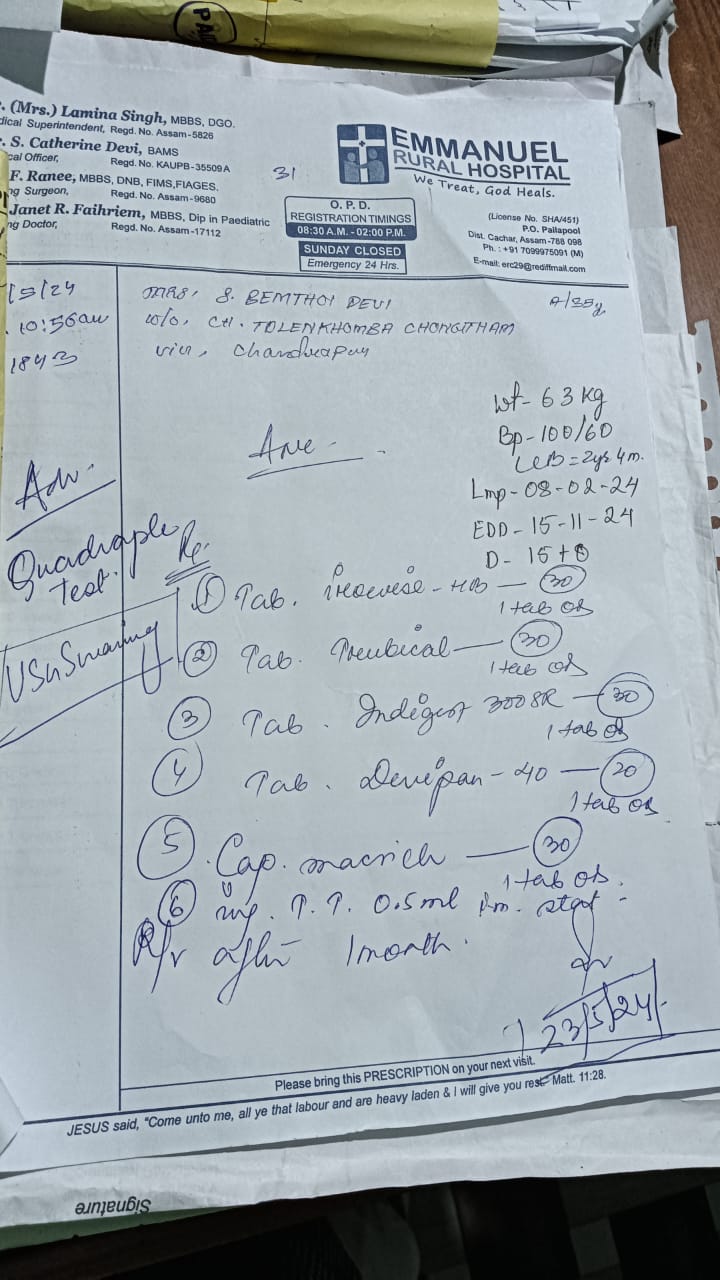 . (Mrs.) Lamina Singh, MBBS, DGO.
dical Superintendent, Regd. No. Assam-5826
. S. Catherine Devi, BAMS
cal Officer, Regd. No. KAUPB-35509A
F. Ranee, MBBS, DNB, FIMS,FIAGES,
ng Surgeon, Regd. No. Assam-9680
Janet R. Faihriem, MBBS, Dip in Paediatric
ng Doctor, Regd. No. Assam-17112
31
EMMANUEL
RURAL HOSPITAL
We Treat, God Heals.
O. P. D.
REGISTRATION TIMINGS
08:30 A.M. - 02:00 P.M.
SUNDAY CLOSED
Emergency 24 Hrs.
(License No. SHA/451)
P.O. Pailapool
Dist. Cachar, Assam-788 098
Ph. : +91 7099975091 (M)
E-mail: erc29@rediffmail.com
/5/24
10:56am
1843
MRS, S. BEMTHOI DEVI
W/o, CH. TOLENKHOMBA CHONGTHAM
Vill, Chandrapur
Wt- 63 kg
Bp- 100/60
LCB = 2yr 4 m.
Lmp- 08-02-24
EDD- 15-11-24
D- 15+0
Adv.
Quadraple
Test.
Rx.
1 Tab. - HB — 30
1 tab od
2 Tab. — 30
1 tab od
3 Tab. 300 SR — 30
1 tab od
4 Tab. - 40 — 20
1 tab od
5 Cap. macrich — 30
1 tab od.
6 inj. T.T. 0.5 ml Im. stat
R/v after 1 month.
23/5/24
Please bring this PRESCRIPTION on your next visit.
JESUS said, "Come unto me, all ye that labour and are heavy laden & I will give you rest- Matt. 11:28.
Signature